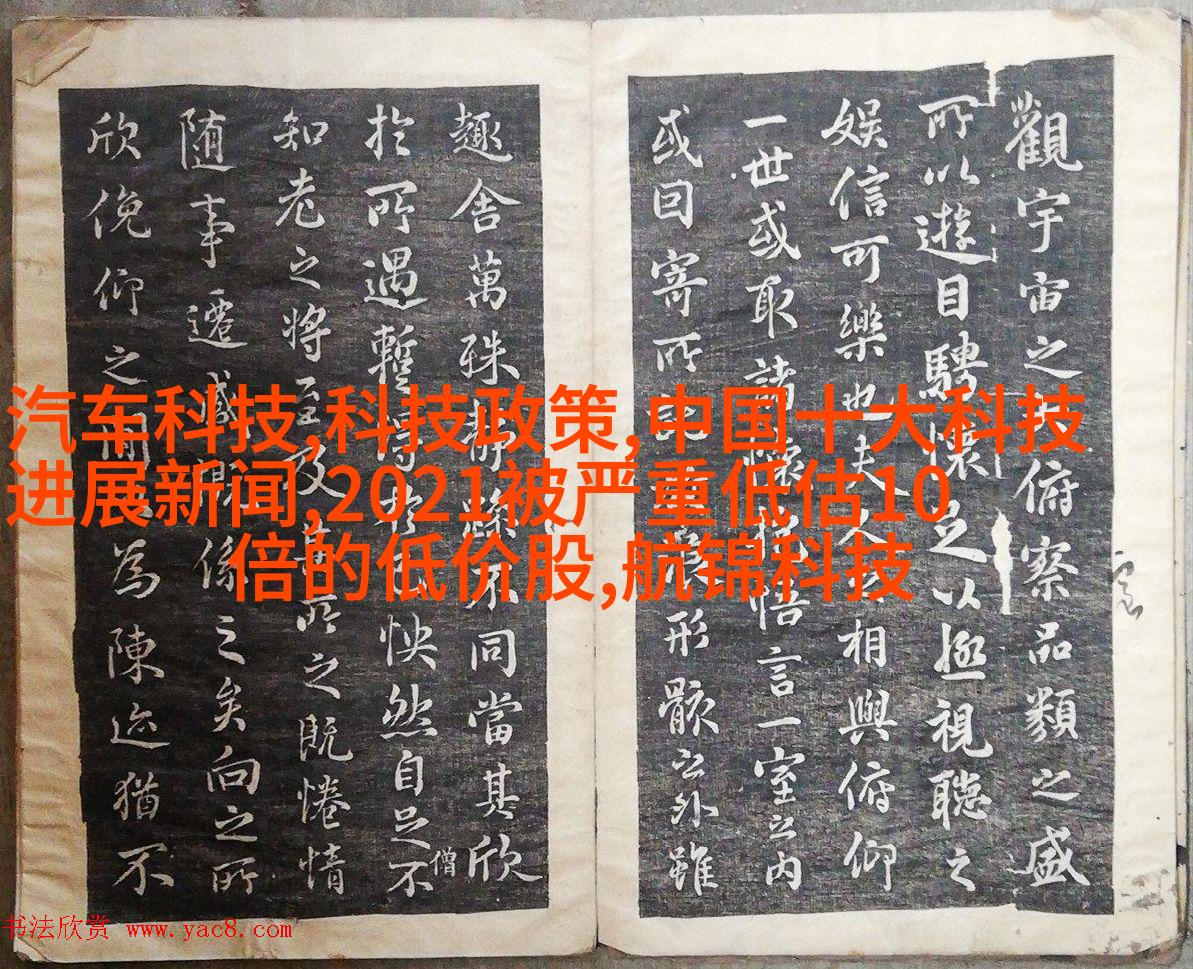 觀宇宙之俯察品類之盛
所以遊目騁懷足以極視聽之
娛信可樂也夫人相與俯仰
一世或取諸懷抱悟言一室之內
或因寄所形骸之外雖
趣舍萬殊不同當其欣
於所遇暫得怏然自足不
僧
知老之將至及其所之既惓情
随事遷感係之矣向之所
欣俛仰之為陳迹猶不
汽车科技,科技政策,中国十大科技
进展新闻,2021被严重低估10
倍的低价股,航锦科技
书法欣赏 www.yac8.com